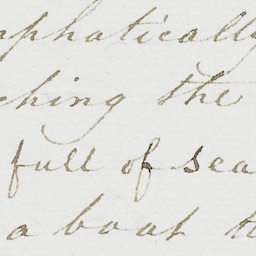 mphatically
ching the
full of sea
a boat to